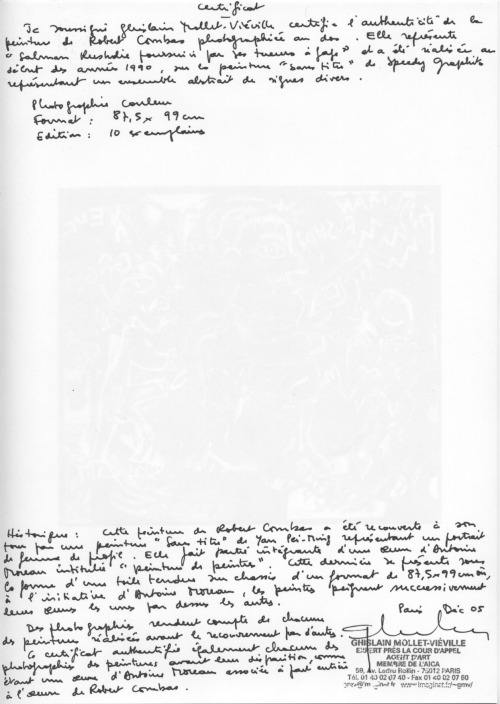 Certificat
Je soussigné Ghislain Mollet-Viéville certifie l'authenticité de la
peinture de Robert Combas photographiée au dos. Elle représente
"Salman Rushdie poursuivi par ses tueurs à gage" et a été réalisée au
début des années 1990, sur la peinture "Sans titre" de Speedy Graphito
représentant un ensemble abstrait de signes divers.
Photographie Couleur
Format : 87,5 x 99 cm
Edition : 10 exemplaires
Historique : Cette peinture de Robert Combas a été recouverte à son
tour par une peinture "Sans titre" de Yan Pei-Ming représentant un portrait
de femme de profil. Elle fait partie intégrante d'une œuvre d'Antoine
Moreau intitulée "peinture de peintres". Cette dernière se présente sous
la forme d'une toile tendue sur chassis d'un format de 87,5 x 99 cm où,
à l'initiative d'Antoine Moreau, les peintres peignent successivement
leurs œuvres les uns par dessus les autres.
Paris Déc 05
Des photographies rendent compte de chacune
des peintures réalisées avant le recouvrement par d'autres.
Ce certificat authentifie également chacune des
photographies des peintures avant leur disparition, comme
étant une œuvre d'Antoine Moreau associée à part entière
à l'œuvre de Robert Combas.
GHISLAIN MOLLET-VIÉVILLE
EXPERT PRÈS LA COUR D'APPEL
AGENT D'ART
MEMBRE DE L'AICA
59, Av. Ledru Rollin - 75012 PARIS
Tél. 01 40 02 07 40 - Fax 01 40 02 07 60
www.imaginet.fr/~gmv/